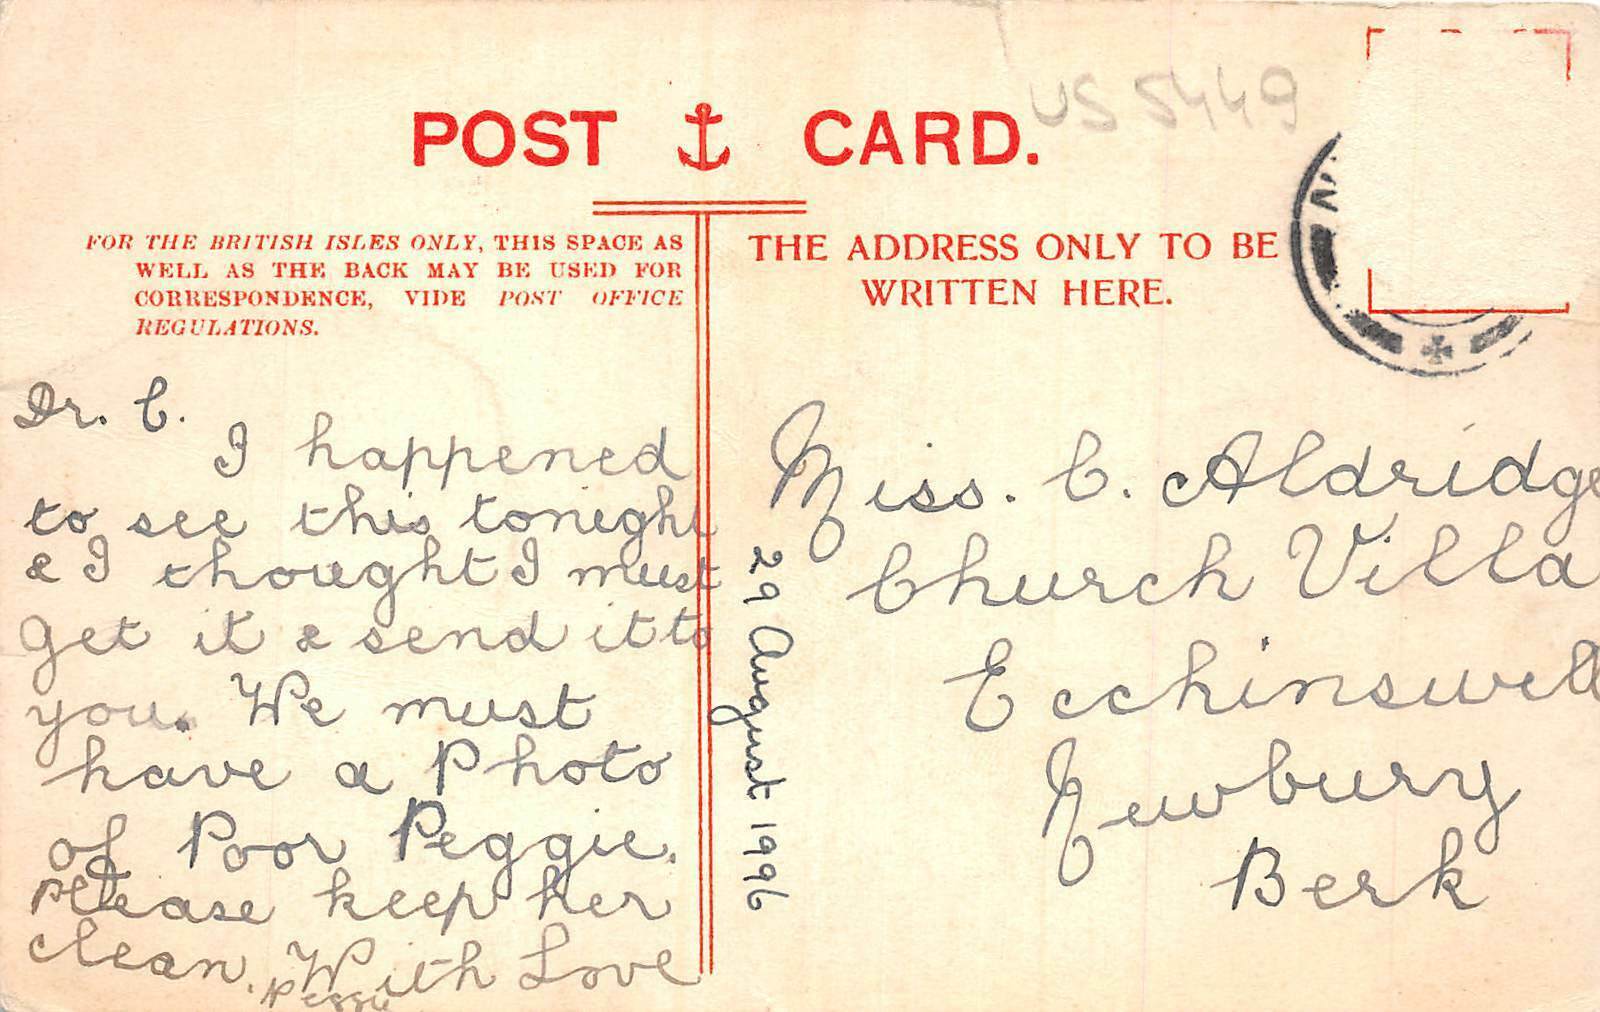 US 5449
POST CARD.
FOR THE BRITISH ISLES ONLY, THIS SPACE AS
WELL AS THE BACK MAY BE USED FOR
CORRESPONDENCE, VIDE POST OFFICE
REGULATIONS.
THE ADDRESS ONLY TO BE
WRITTEN HERE.
Dr. C.
I happened
to see this tonight
& I thought I must
get it & send it to
you. We must
have a Photo
of Poor Peggie.
Please keep her
clean. With Love
Peggie
29 August 1996
Miss. C. Aldridge
Church Villa
Ecchinswell
Newbury
Berk